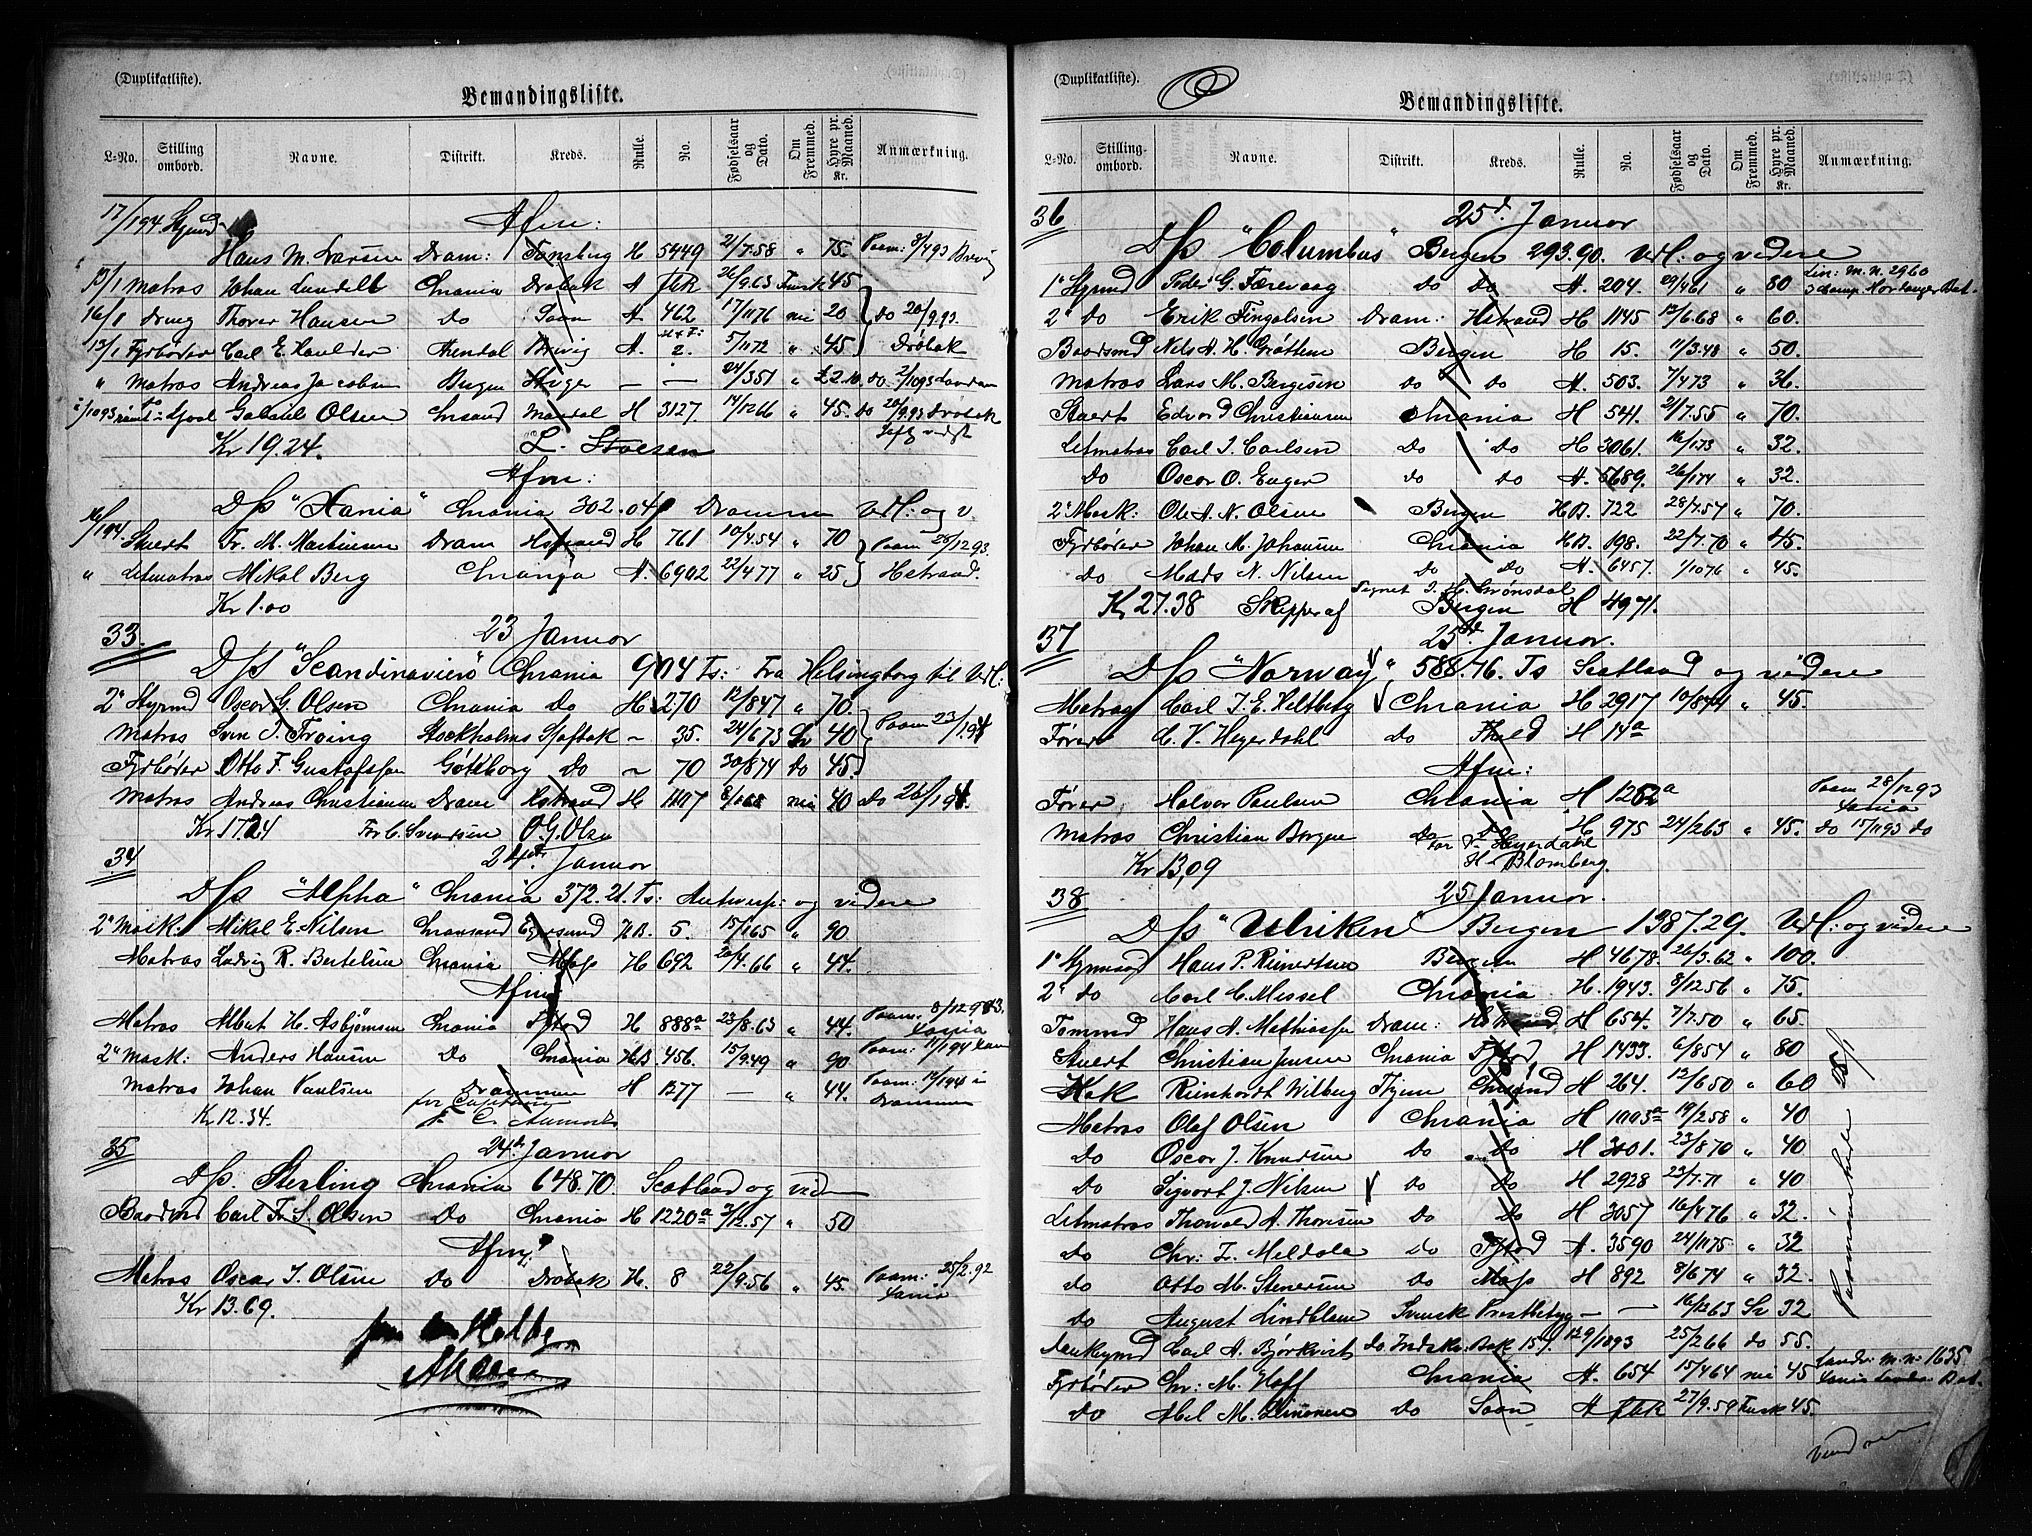 (Duplikatliste).
Bemandingsliste.
L-No. Stilling ombord. Navne. Distrikt. Kreds. Rulle. No. Fødselsaar og Dato. Om Fremmed. Hyre pr. Maaned. Kr. Anmærkning.
17/1 94 Stymd Afm:
Hans M. Larsen Dram: Tønsberg H 5449 2/7.58 " 75.
13/1 Matros Johan Lundell Chrania Drøbak A 26/9.63 Finsk 45
16/1 dreng Thorer Hansen Do Soon A. 462 17/11 76 nei 20 Do 20/9.93.
13/1 Fyrbøder Carl E. Arendal Brevig A. 2. 5/11 72 " 45 Drøbak
" Matros Andreas Jacobsen Bergen — — 24/3 51 " £2.10. do. 2/10 93 London
Gabriel Olsen Chrsand Mandal H 3127. 14/12 66 " 45. Do 20/9.93 Drøbak
Kr 19.24. L. Stoesen
Afm:
D/s "Xania" Chrania 302.04 Drammen Udl: og v.
16/1 94. Stuert Fr. M. Martinsen Dram Hstrand H 761 10/4.54 " 70 Paam 28/12 93.
" Letmatros Mikal Berg Chrania A. 6902 22/4 77 " 25 Hstrand.
Kr 1.00
33. 23 Januar
D/s "Scandinavien" Chrania 904 Ts: Fra Helsingborg til Udl:
2" Stymd Oscar G. Olsen Chrania Do H 270 12/8 47 " 70
Matros Sven J. Fröing Stockholms Sjøfbok ~ 35. 24/6 73 Sv 40 Paam 23/1 94
Fyrbøder Otto F. Gustafsson Göteborg Do ~ 70 30/8 74 Do 45.
Matros Andreas Christiansen Dram Hstrand H 1107 nei 40 Do 26/1 94.
Kr 17.24 For C. Svendsen O. G. Olsen
34 24de Januar
D/s "Alpha" Chrania 372.21 Ts: Antwerp: og videre
2" Mask. Mikal E. Nilsen Chransand Egersund HB. 5. 15/1 65 " 90.
Matros Ludvig R. Bertelsen Chrania Moss H 692 20/4.66 " 44.
Afm:
Matros Albert H. Asbjørnsen Chrania H 888a 23/8.63 " 44. Paam: 8/12 93, Xania
2" Mask: Anders Hansen Do Chrania HB 456. 15/9.49 " 90 Paam: 11/1 94
Matros Johan Paulsen Drammen H 1377 — " 44. Paam: 12/1 94 i Drammen
Kr 12.34. for Capitain
35 24de Januar
D/s. Sterling Chrania 648.70 Scotland og videre
Baadsmd Carl Fr. S. Olsen Do Chrania H 1220a 3/12.57 " 50
Afm:
Matros Oscar J. Olsen Do Drøbak H. 8 22/9.56 " 45. Paam: 25/2.92 Xania
Kr 13.69.
(Duplikatliste).
Bemandingsliste.
L-No. Stilling ombord. Navne. Distrikt. Kreds. Rulle. No. Fødselsaar og Dato. Om Fremmed. Hyre pr. Maaned. Kr. Anmærkning.
36 25d. Januar
D/s "Columbus" Bergen 293.90. Udl: og videre
1" Stymd Peder G. Færevaag Do Do A. 204. 29/4 61 " 80 m. n. 2960
2" Do Erik Fingalsen Dram: Hstrand H 1145 12/6.68 " 60.
Baadsmd Nils A. H. Grøttem Bergen H 15. 11/3.48 " 50.
Matros Lars M. Bergesen do do A. 503. 7/4 73 " 36.
Stuert Edvard Christiansen Chrania H 541. 21/7.55 " 70.
Letmatros Carl J. Carlsen Do Do H 3061. 16/1 73 " 32.
Do Oscar O. Enger do do A. 5689. 26/1 74 " 32.
2" Mask: Ole A. N. Olsen Bergen HB. 722 28/7.54 " 70.
Fyrbøder Johan M. Johansen Chrania HB. 198. 22/7.70 " 45.
do Mads N. Nilsen Do Do A. 6457. 1/10 76 " 45.
Kr 27.38 Skipper af Bergen H 4971.
37 25de Januar.
D/s "Norway" 588.76. Ts Scotland og videre
Matros Carl J. E. Veltberg Chrania H 2917 " 45.
Fører C. V. Heyerdahl do H 14a
Afm:
Fører Halvor Paulsen Chrania H 1262a Paam 28/12 93 Xania
Matros Christian Borgen Do Do H 975 24/2 63 " 45. do 15/11 93 do
Kr 13,09 for V. Heyerdahl
H. Blomberg.
38 25 Januar.
D/s "Ulriken" Bergen 1387.29. Udl: og videre
1" Stymand Hans P. Reinertsen Bergen H 4678. 26/3.62 " 100.
2" do Carl C. Messel Chrania H. 1943. 8/12 56 " 75.
Tømmd Hans A. Mathiassen Dram: Hstrand H 654. 7/7.50 " 65.
Stuert Christian Jensen Chrania H 1433. 6/8 54 " 80
Kok Reinhardt Wilberg H 264. 12/6.50 " 60
Matros Olaf Olsen Chrania H 1003a 19/2.58 " 40
Do Oscar J. Knudsen Do Do H 3001. 23/8 70 " 40
do Sigvart J. Nilsen Do Do H 2928 23/7.71 " 40
Letmatros Thorvald A. Thoresen Do Do H 3057 16/4 76 " 32.
do Chr: L. Meldale Do A. 3590 24/11 75 " 32
do Otto M. Stenersen Do Moss H 892 8/6 74 " 32.
do August Lindblom Svensk Prestbetyg — — 16/12 63 Sv 32
Carl A. Björkvist do. 25/2 66 do 55.
Fyrbøder Chr: M. Hoff Chrania A. 654 15/4 64 nei 45 m. n. 1635.
Do Abel M. Do Soon A 27/9.59 Finsk 45.
Paamønstrede 25/1